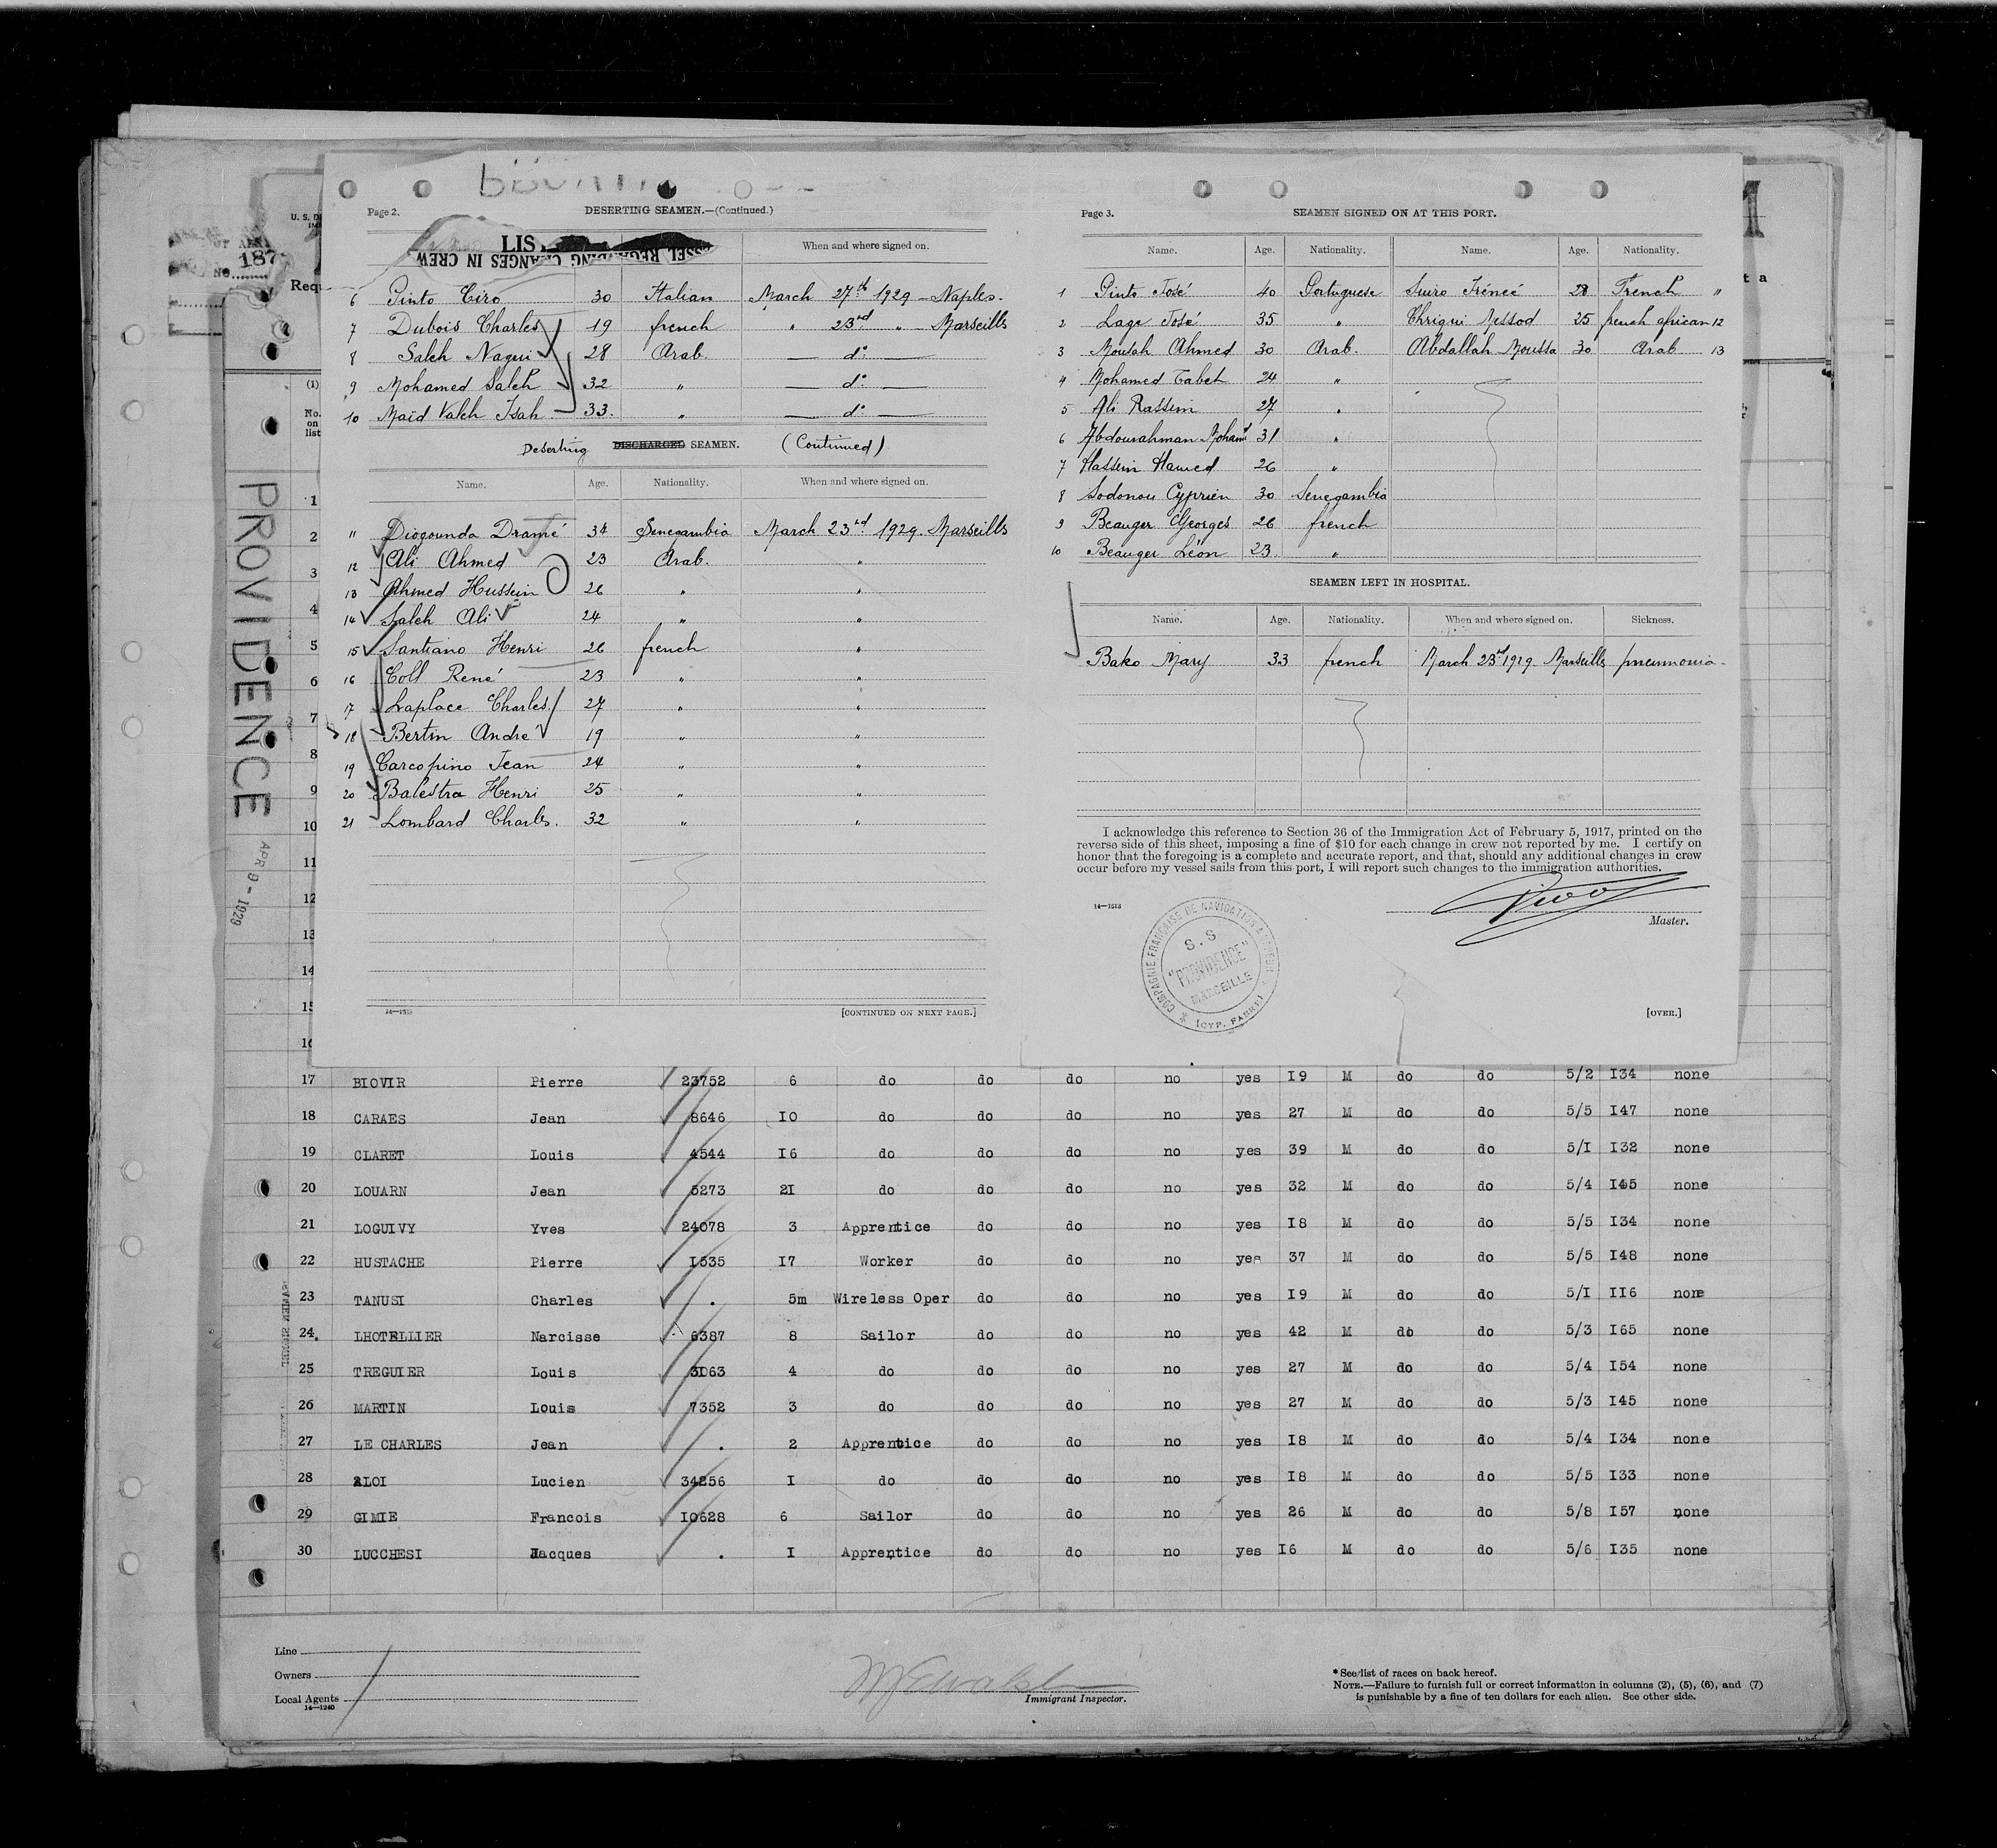 Page 2.
DESERTING SEAMEN.—(Continued.)
LIS
SSEL REGARDING CHANGES IN CREW
When and where signed on.
6 Pinto Ciro 30 Italian March 27th 1929 - Naples.
7 Dubois Charles 19 french " 23rd " Marseills
8 Saleh Nagui 28 Arab. — do: —
9 Mohamed Saleh 32 " — do: —
10 Maïd Valeh Isah 33. " — do: —
Deserting DISCHARGED SEAMEN. (Continued)
Name. Age. Nationality. When and where signed on.
" Diogounda Dramé 34 Senegambia March 23rd 1929. Marseills
12 Ali Ahmed 23 Arab. "
13 Ahmed Hussein 26 " "
14 Saleh Ali 24 " "
15 Santiano Henri 26 french "
16 Coll René 23 " "
17 Laplace Charles 27 " "
18 Bertin André 19 " "
19 Carcopino Jean 24 " "
20 Balestra Henri 25 " "
21 Lombard Charles. 32 " "
14—1613
[CONTINUED ON NEXT PAGE.]
Page 3.
SEAMEN SIGNED ON AT THIS PORT.
Name. Age. Nationality. Name. Age. Nationality.
1 Pinto José 40 Portuguese Suiro Iréneé 28 French "
2 Lage José 35 " Chriqui Messod 25 french african 12
3 Moulah Ahmed 30 Arab. Abdallah Moussa 30 Arab 13
4 Mohamed Tabet 24 "
5 Ali Rassem 27 "
6 Abdourahman Mohamd 31 "
7 Hassein Hamed 26 "
8 Sodonou Cyprien 30 Senegambia
9 Beauger Georges 26 french
10 Beauger Léon 23. "
SEAMEN LEFT IN HOSPITAL.
Name. Age. Nationality. When and where signed on. Sickness.
Bako Mary 33 french March 23rd 1929 Marseills pneumonia -
I acknowledge this reference to Section 36 of the Immigration Act of February 5, 1917, printed on the
reverse side of this sheet, imposing a fine of $10 for each change in crew not reported by me. I certify on
honor that the foregoing is a complete and accurate report, and that, should any additional changes in crew
occur before my vessel sails from this port, I will report such changes to the immigration authorities.
14—1613
Master.
COMPAGNIE FRANÇAISE DE NAVIGATION A VAPEUR
S.S
"PROVIDENCE"
MARSEILLE
(CYP. FABRE)
[OVER.]
U. S. D
No. 187
Requ
t a
(1)
No.
on
list
PROVIDENCE
APR 9 - 1929
1
2
3
4
5
6
7
8
9
10
11
12
13
14
15
16
17 BIOVIR Pierre 23752 6 do do do no yes I9 M do do 5/2 I34 none
18 CARAES Jean 8646 IO do do do no yes 27 M do do 5/5 I47 none
19 CLARET Louis 4544 I6 do do do no yes 39 M do do 5/I I32 none
20 LOUARN Jean 5273 2I do do do no yes 32 M do do 5/4 I45 none
21 LOGUIVY Yves 24078 3 Apprentice do do no yes I8 M do do 5/5 I34 none
22 HUSTACHE Pierre I535 I7 Worker do do no yes 37 M do do 5/5 I48 none
23 TANUSI Charles . 5m Wireless Oper do do no yes I9 M do do 5/I II6 none
24. LHOTELLIER Narcisse 6387 8 Sailor do do no yes 42 M do do 5/3 I65 none
25 TREGUIER Louis 3063 4 do do do no yes 27 M do do 5/4 I54 none
26 MARTIN Louis 7352 3 do do do no yes 27 M do do 5/3 I45 none
27 LE CHARLES Jean . 2 Apprentice do do no yes I8 M do do 5/4 I34 none
28 ALOI Lucien 34256 I do do do no yes I8 M do do 5/5 I33 none
29 GIMIE Francois I0628 6 Sailor do do no yes 26 M do do 5/8 I57 none
30 LUCCHESI Jacques . I Apprentice do do no yes I6 M do do 5/6 I35 none
Line
Owners
Local Agents
14—1240
Immigrant Inspector.
* See list of races on back hereof.
NOTE.—Failure to furnish full or correct information in columns (2), (5), (6), and (7)
is punishable by a fine of ten dollars for each alien. See other side.